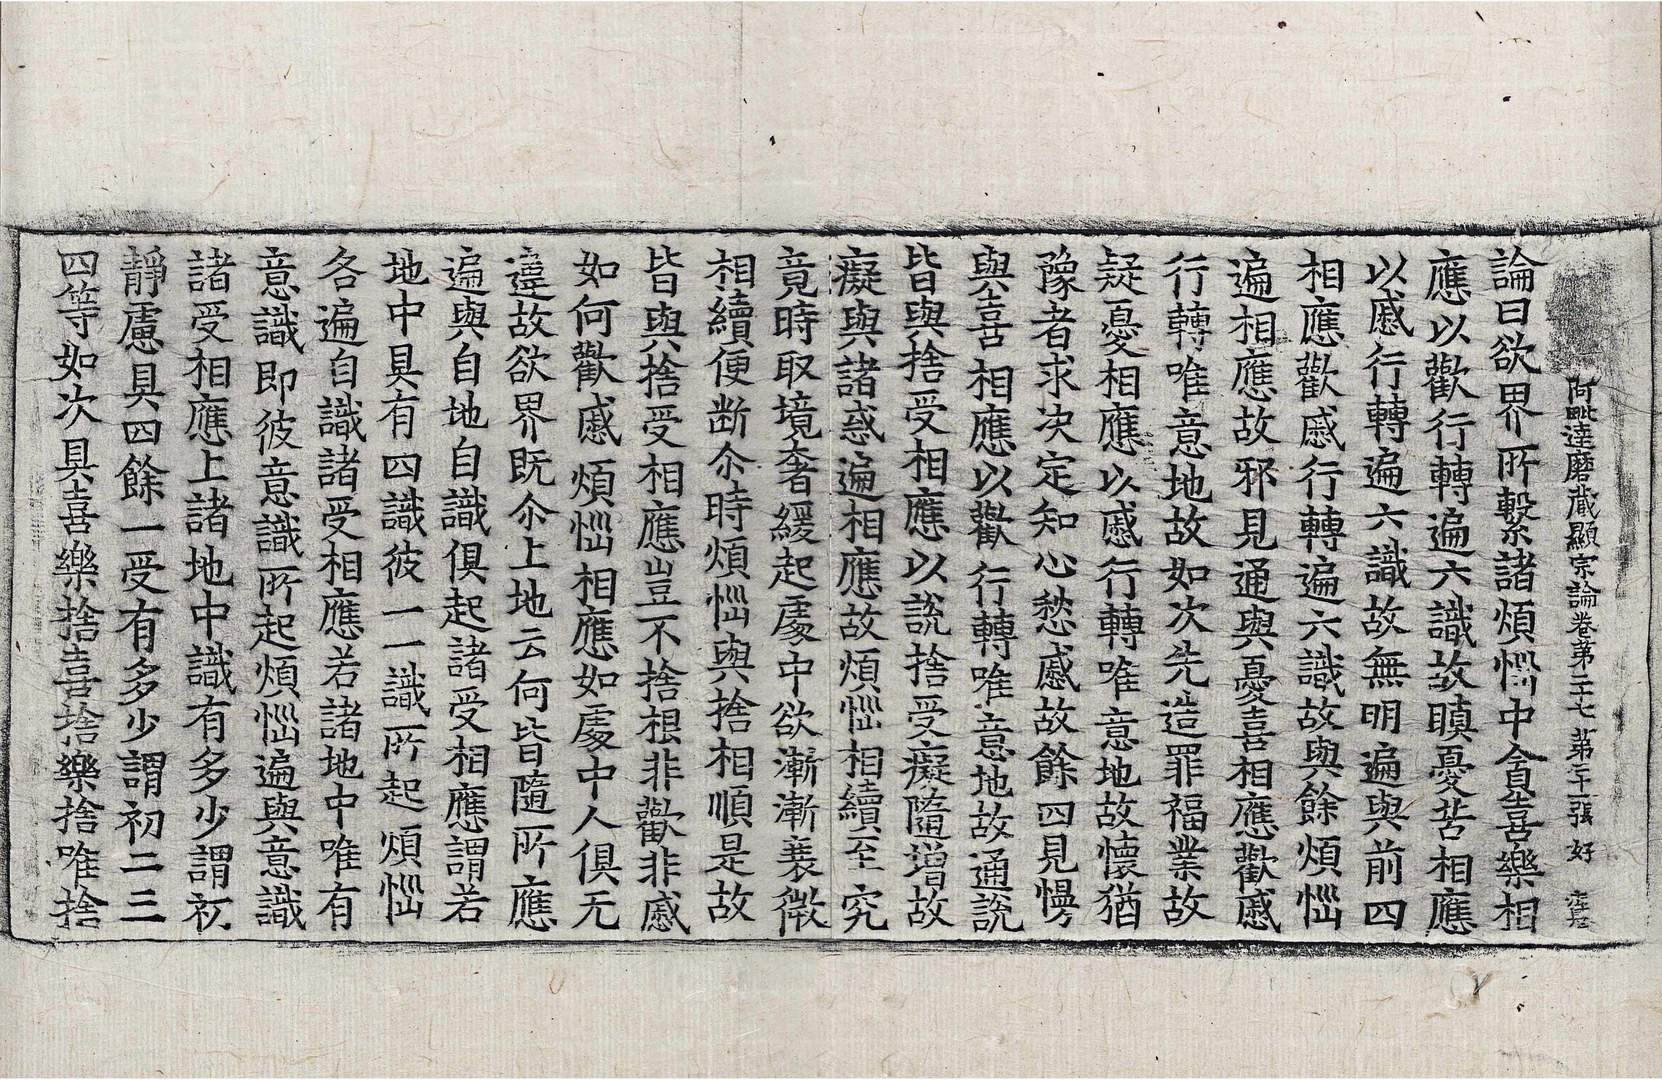 阿毗達磨藏顯宗論卷第二十七 第二十一張 好
論曰欲界所繫諸煩惱中貪喜樂相
應以歡行轉遍六識故瞋憂苦相應
以慼行轉遍六識故無明遍與前四
相應歡慼行轉遍六識故與餘煩惱
遍相應故邪見通與憂喜相應歡慼
行轉唯意地故如次先造罪福業故
疑憂相應以慼行轉唯意地故懷猶
豫者求決定知心愁慼故餘四見慢
與喜相應以歡行轉唯意地故通說
皆與捨受相應以說捨受癡隨增故
癡與諸惑遍相應故煩惱相續至究
竟時取境奢緩起處中欲漸漸衰微
相續便断尒時煩惱與捨相順是故
皆與捨受相應豈不捨根非歡非慼
如何歡慼煩惱相應如處中人俱无
違故欲界既尒上地云何皆隨所應
遍與自地自識俱起諸受相應謂若
地中具有四識彼一一識所起煩惱
各遍自識諸受相應若諸地中唯有
意識即彼意識所起煩惱遍與意識
諸受相應上諸地中識有多少謂初
靜慮具四餘一受有多少謂初二三
四等如次具喜樂捨喜捨樂捨唯捨